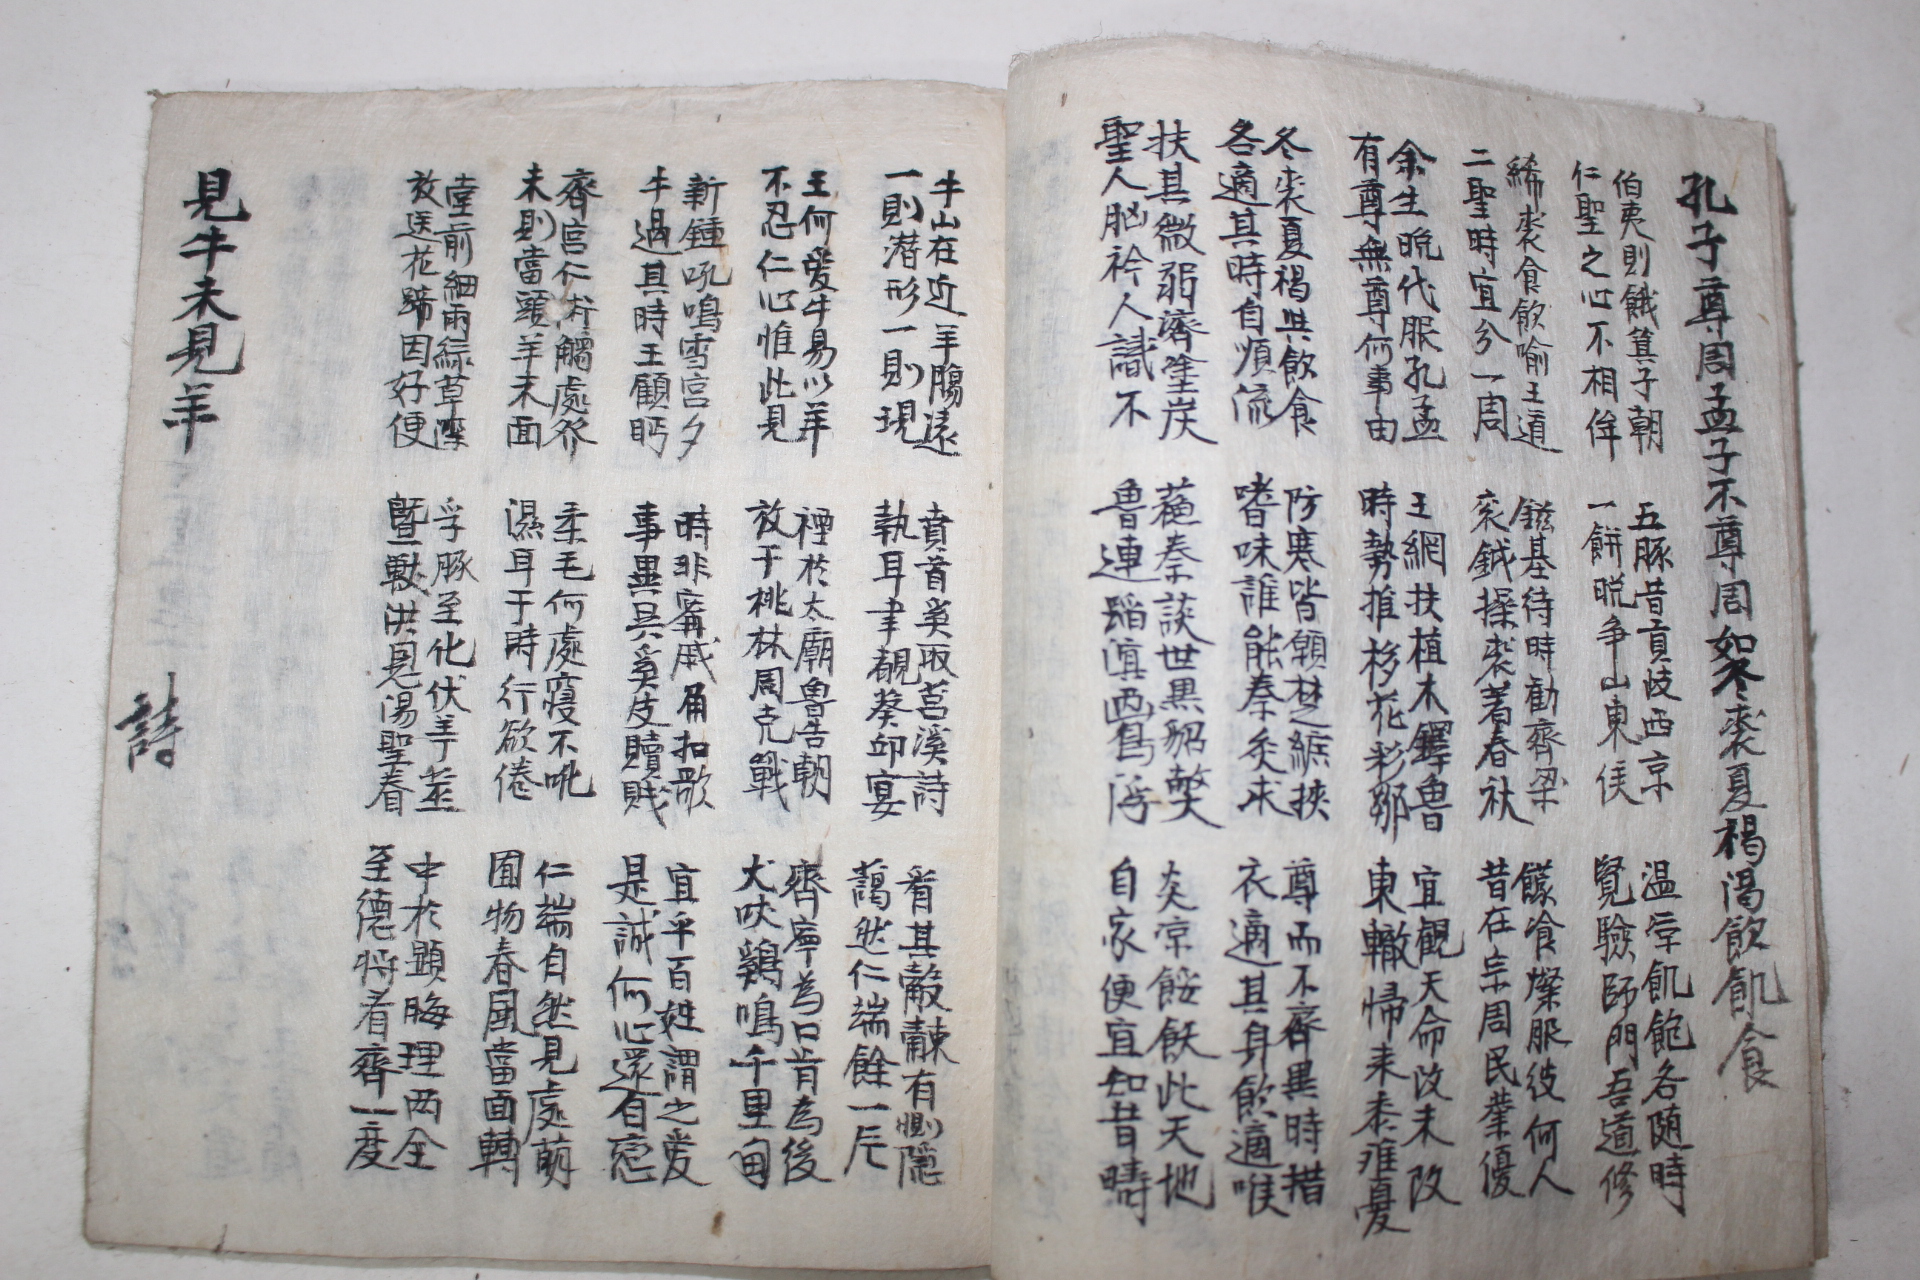 孔子尊周孟子不尊周如冬裘夏褐渴飲飢食
伯夷則餓箕子朝
仁聖之心不相侔
五豚昔貢岐西京
一餅晩争山東侯
温凉飢飽各随時
覽驗師門吾道修
絺裘食飲喻王道
二聖時宜分一周
鎡基待時勸齊梁
衮鉞操裘著春秋
饎飡燦服彼何人
昔在宗周民業優
余生晩代服孔孟
有尊無尊何事由
王網扶植木鐸魯
時勢推移花彩鄒
宜觀天命改未改
東轍帰来泰雅憂
冬裘夏褐共飲食
各適其時自順流
防寒皆願楚縦挾
嗜味誰能秦炙求
尊而不齊異時措
衣適其身飲適喉
扶其微弱濟塗炭
聖人胸衿人識不
蘓秦談世黒貂弊
魯連蹈溟西舃浮
炎凉餒飫此天地
自家便宜知昔疇
牛山在近羊膓遠
一則潜形一則現
賁首奚取苕溪詩
執耳聿覩葵邱宴
看其觳觫有惻隠
藹然仁端餘一片
王何愛牛易以羊
不忍仁心惟此見
禋於太廟魯告朝
放于桃林周克戰
齊寧為口肯為後
犬吠鷄鳴千里甸
新鍾吼鳴雪宮夕
牛過其時王顧眄
時非甯戚角扣歌
事異具奚皮贖賎
宜乎百姓謂之愛
是誠何心還自戀
齊宮仁術觸處發
未則當頭羊未面
柔毛何處寢不吪
濕耳于時行欲倦
仁端自然見處萌
囿物春風當面轉
堂前細雨緑草深
放送花蹄因好便
孚豚至化伏羊並
曁獸洪恩湯聖眷
中於顕晦理两全
至德将看齊一度
見牛未見羊
詩